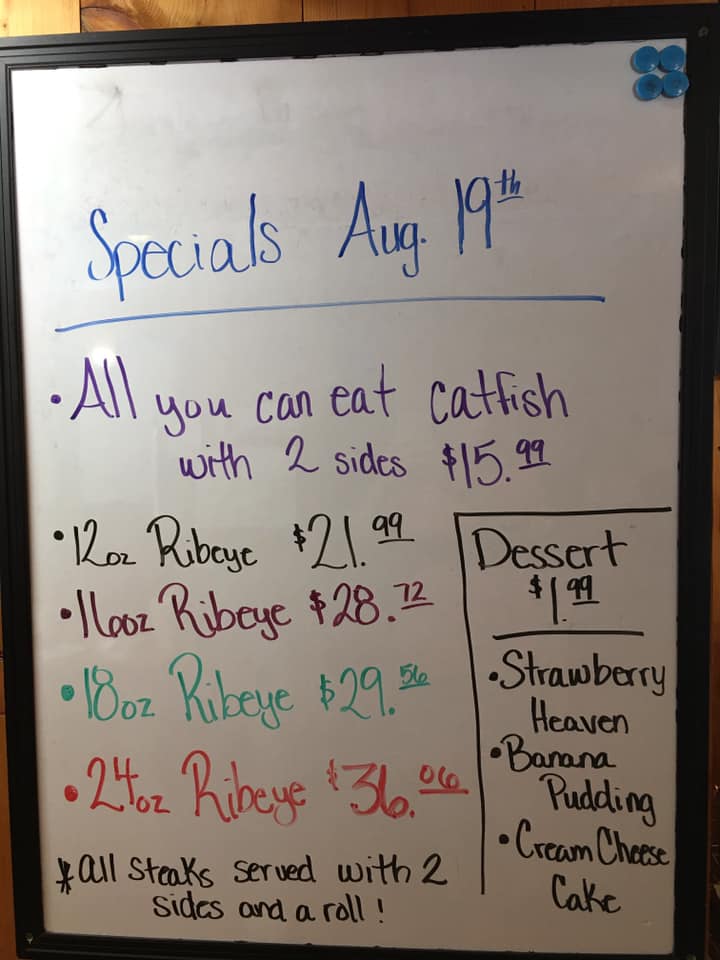 Specials Aug. 19th
• All you can eat catfish
with 2 sides $15.99
• 12oz Ribeye $21.99
• 16oz Ribeye $28.72
• 18oz Ribeye $29.56
• 24oz Ribeye $36.06
* all steaks served with 2
sides and a roll!
Dessert
$1.99
• Strawberry
Heaven
• Banana
Pudding
• Cream Cheese
Cake